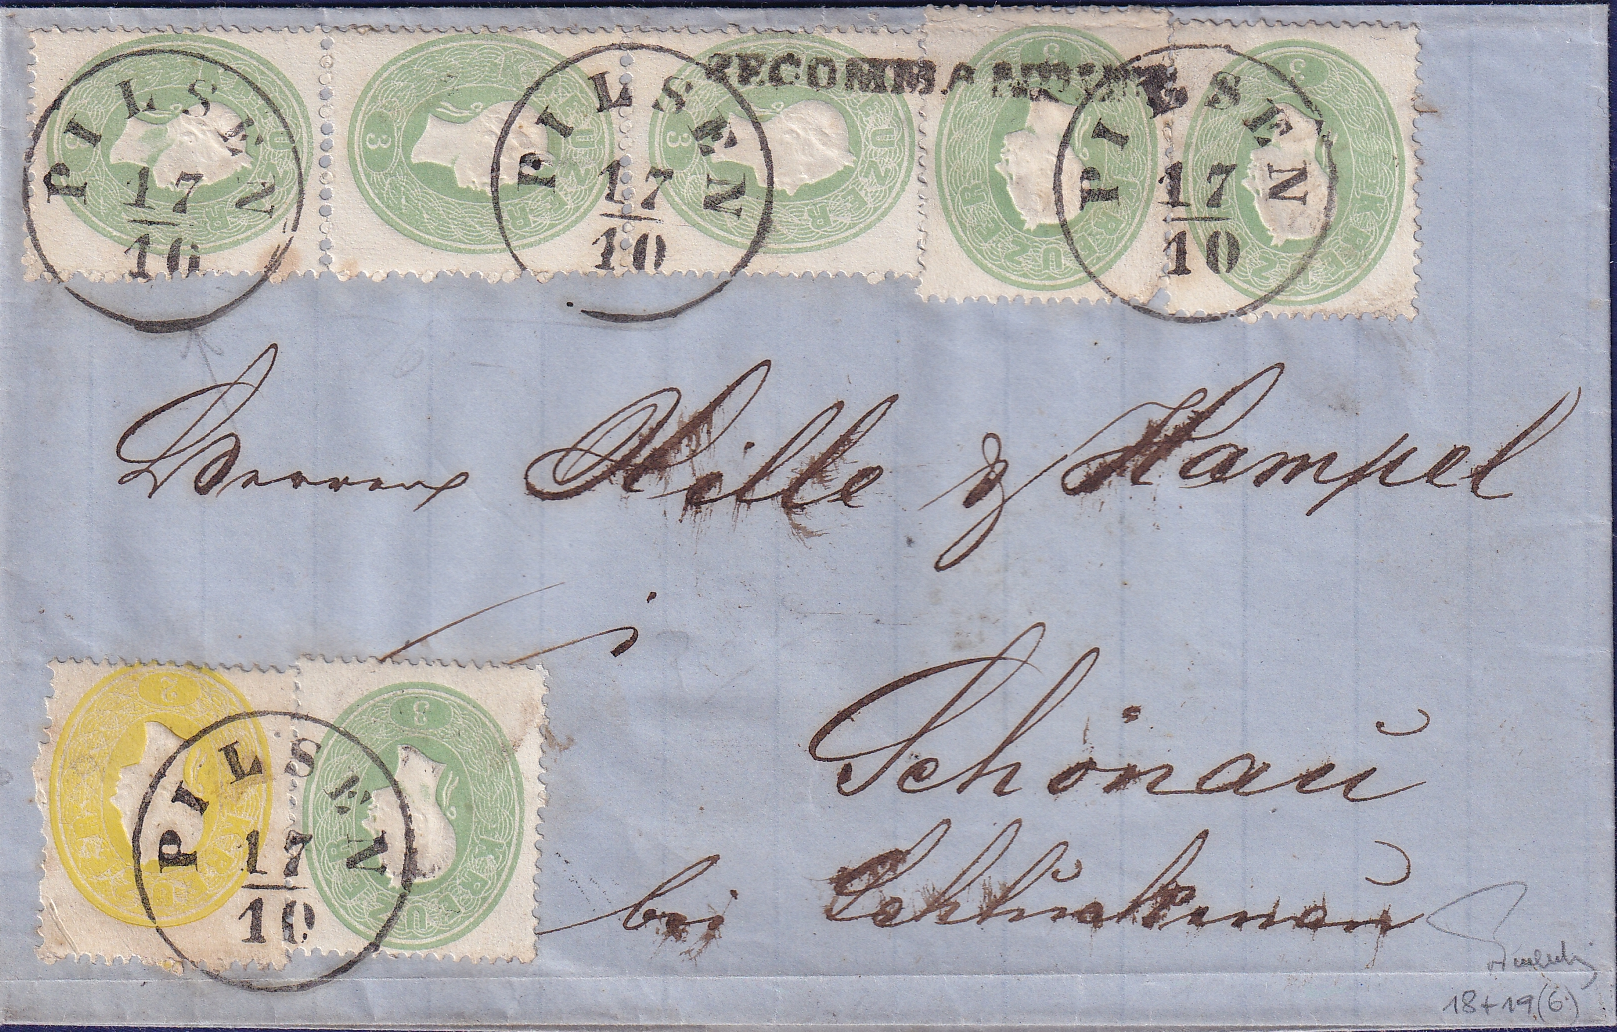 RECOMMANDIRT
PILSEN
17
10
PILSEN
17
10
PILSEN
17
10
Herren Hille & Hampel
in
Schönau
bei Schluckenau
PILSEN
17
10
18+19(6)